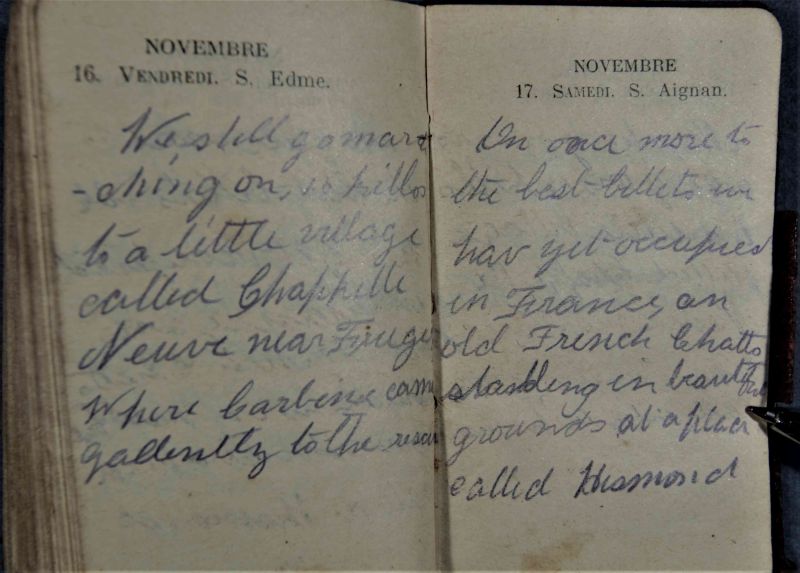 NOVEMBRE
16. VENDREDI. S. Edme.
We still go mar
-ching on, killos
to a little village
called Chappelle
Neuve near
Where Carbine came
gallently to the rescue
NOVEMBRE
17. SAMEDI. S. Aignan.
On once more to
the best billets we
hav yet occupied
in France, an
old French Chatto
standing in beautiful
grounds at a place
called Hesmond